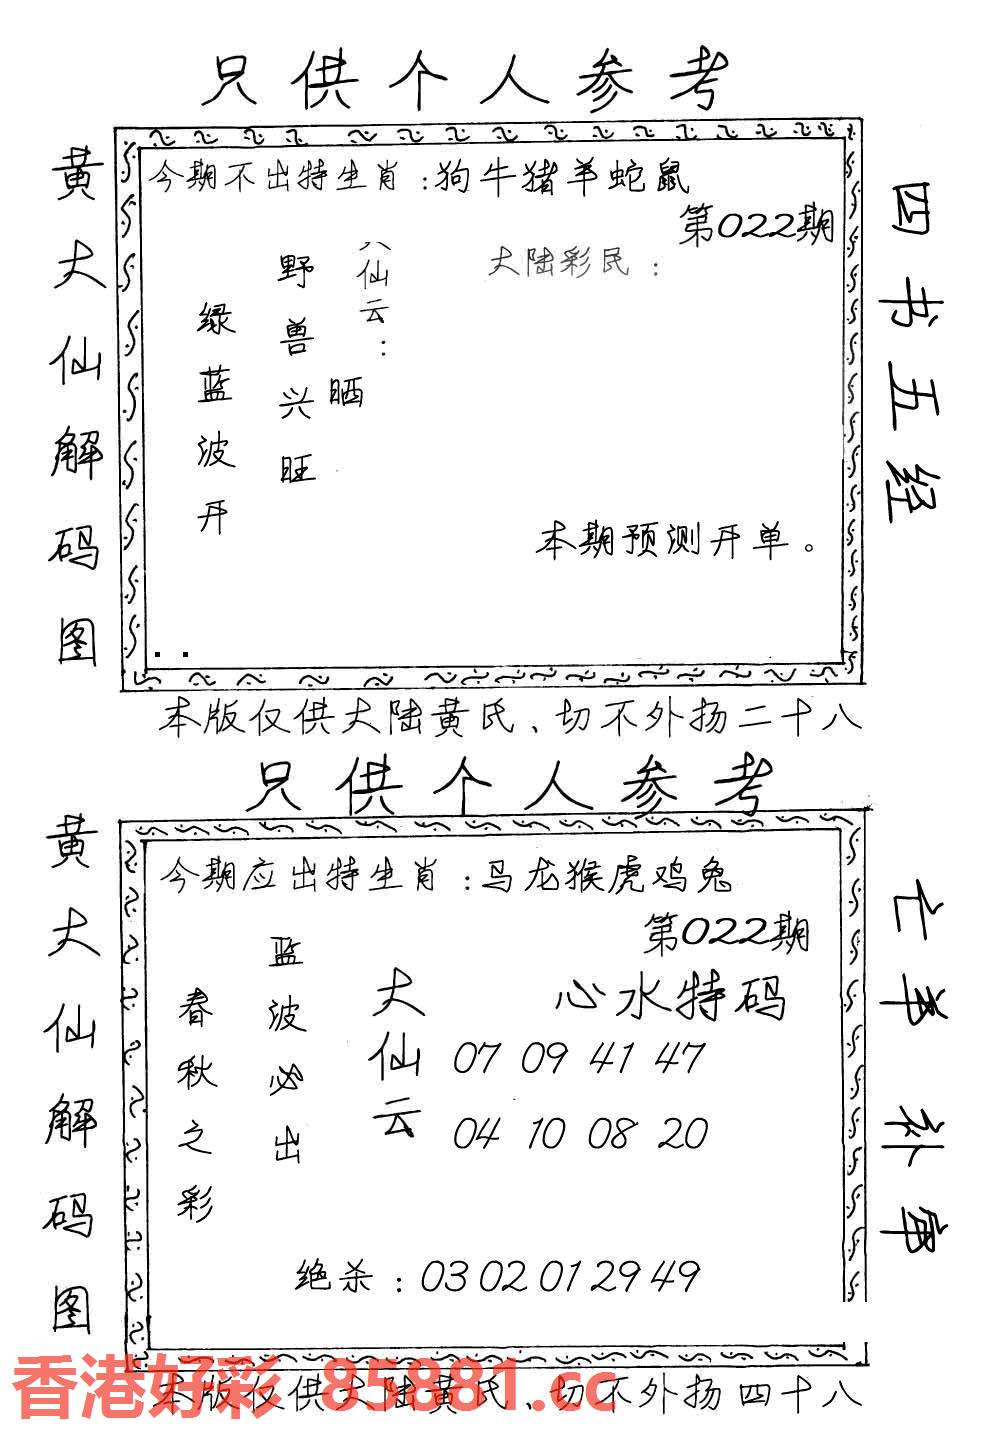 只供个人参考
黄大仙解码图
今期不出特生肖:狗牛猪羊蛇鼠
第022期
大陆彩民:
仙云:
晒
野兽兴旺
绿蓝波开
本期预测开单。
四书五经
本版仅供大陆黄氏、切不外扬二十八
只供个人参考
黄大仙解码图
今期应出特生肖:马龙猴虎鸡兔
第022期
心水特码
大仙云
07 09 41 47
04 10 08 20
蓝波必出
春秋之彩
绝杀:03 02 01 29 49
亡羊补牢
本版仅供大陆黄氏、切不外扬四十八
香港好彩 85881.cc